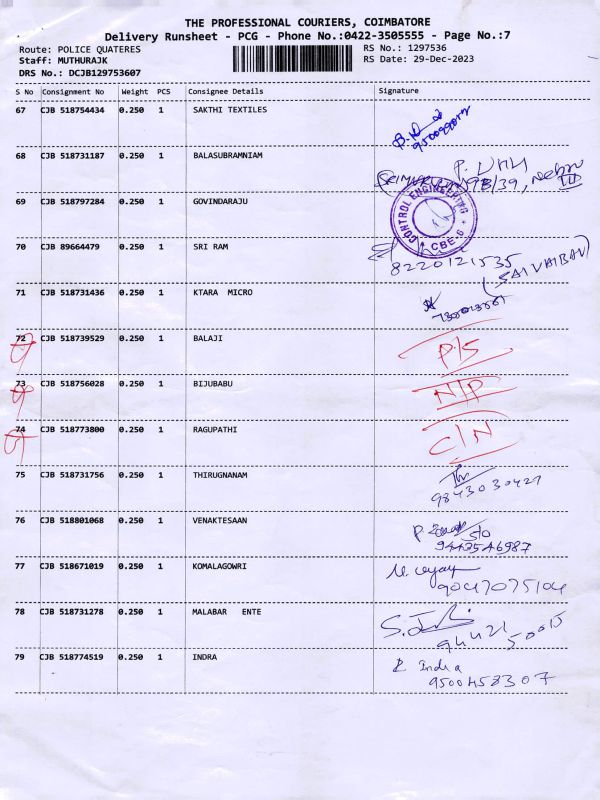 THE PROFESSIONAL COURIERS, COIMBATORE
Delivery Runsheet - PCG - Phone No.:0422-3505555 - Page No.:7
Route: POLICE QUATERES RS No.: 1297536
Staff: MUTHURAJK RS Date: 29-Dec-2023
DRS No.: DCJB129753607
S No Consignment No Weight PCS Consignee Details Signature
67 CJB 518754434 0.250 1 SAKTHI TEXTILES
68 CJB 518731187 0.250 1 BALASUBRAMNIAM
69 CJB 518797284 0.250 1 GOVINDARAJU
CONTROL ENGINEERING * CBE-6 *
70 CJB 89664479 0.250 1 SRI RAM
8220121535
(SAI VAIBAV)
71 CJB 518731436 0.250 1 KTARA MICRO
72 CJB 518739529 0.250 1 BALAJI P/S
73 CJB 518756028 0.250 1 BIJUBABU N/P
74 CJB 518773800 0.250 1 RAGUPATHI C/N
75 CJB 518731756 0.250 1 THIRUGNANAM
9843030427
76 CJB 518801068 0.250 1 VENAKTESAAN
S/o
9443546987
77 CJB 518671019 0.250 1 KOMALAGOWRI
9047075104
78 CJB 518731278 0.250 1 MALABAR ENTE
94421 50015
79 CJB 518774519 0.250 1 INDRA Indra
9500458307